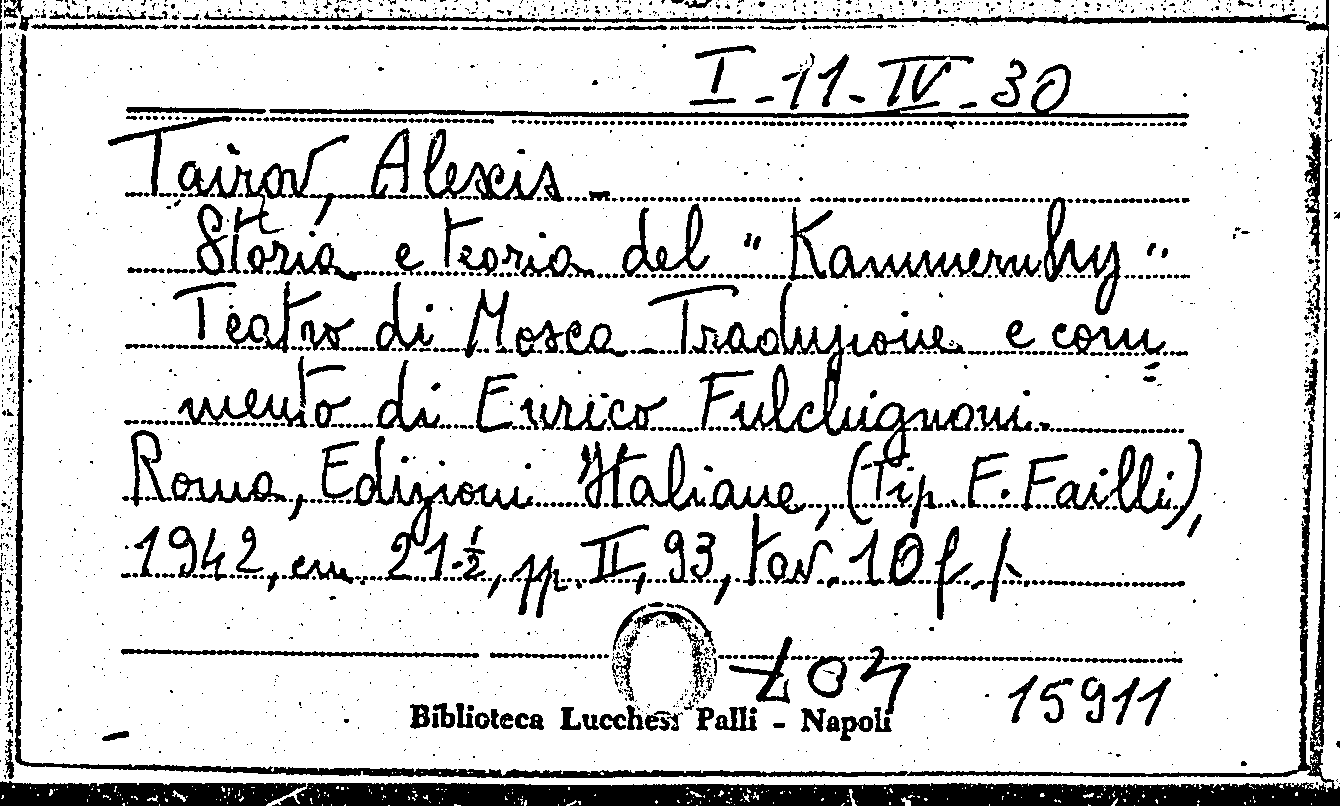 I-11-IV-30
Tairov, Alexis -
Storia e teoria del "Kammernhy"
Teatro di Mosca Traduzione e com=
mento di Enrico Fulchignoni.
Roma, Edizioni Italiane, (Tip. F. Failli),
1942, cm. 21 1/2, pp. II, 93, tav. 10 f. t.
15911
Biblioteca Lucchesi Palli - Napoli